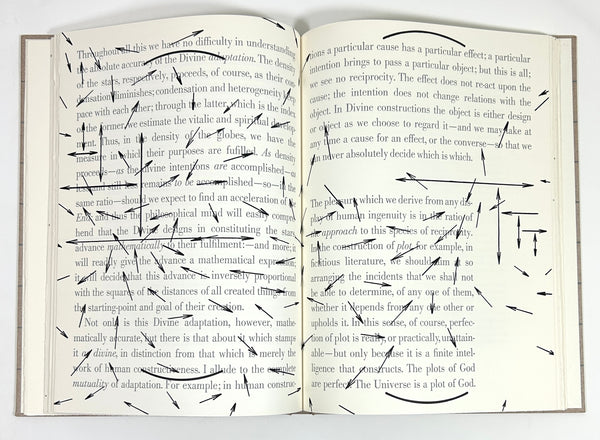 Throughout all this we have no difficulty in understanding
the absolute accuracy of the Divine adaptation. The density
of the stars, respectively, proceeds, of course, as their con-
densation diminishes; condensation and heterogeneity keep
pace with each other; through the latter, which is the index
of the former, we estimate the vitalic and spiritual develop-
ment. Thus, in the density of the globes, we have the
measure in which their purposes are fulfilled. As density
proceeds—as the divine intentions are accomplished—as
less and less remains to be accomplished—so—in the
same ratio—should we expect to find an acceleration of
the End: and thus the philosophical mind will easily compre-
hend that the Divine designs in constituting the stars,
advance mathematically to their fulfilment:—and more; it
will readily give the advance a mathematical expression;
it will decide that this advance is inversely proportional
with the squares of the distances of all created things from
the starting-point and goal of their creation.
Not only is this Divine adaptation, however, mathe-
matically accurate, but there is that about it which stamps
it as divine, in distinction from that which is merely the
work of human constructiveness. I allude to the complete
mutuality of adaptation. For example; in human construc-
tions a particular cause has a particular effect; a particular
intention brings to pass a particular object; but this is all;
we see no reciprocity. The effect does not re-act upon the
cause; the intention does not change relations with the
object. In Divine constructions the object is either design
or object as we choose to regard it—and we may take at
any time a cause for an effect, or the converse—so that we
can never absolutely decide which is which.
The pleasure which we derive from any dis-
play of human ingenuity is in the ratio of
the approach to this species of reciprocity.
In the construction of plot, for example, in
fictitious literature, we should aim at so
arranging the incidents that we shall not
be able to determine, of any one of them,
whether it depends from any one other or
upholds it. In this sense, of course, perfec-
tion of plot is really, or practically, unattain-
able—but only because it is a finite intel-
ligence that constructs. The plots of God
are perfect. The Universe is a plot of God.